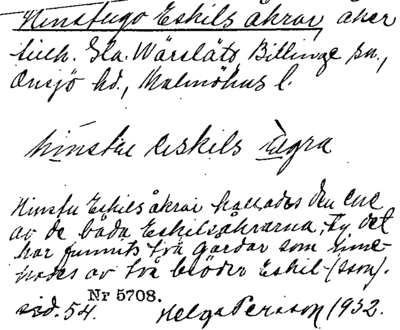 Hinstugo Eskils åkrar, åker
tillh. Gla. Wärsläts Billinge sn.,
Onsjö hd., Malmöhus l.
hinstu eskils ægra
Hinstu Eskils åkrar kallades den ene
av de båda Eskilsåkrarna, ty det
har funnits två gårdar som inne-
hades av två bröder Eskil-(sson).
sid. 54. Nr 5708. Helge Persson 1932.